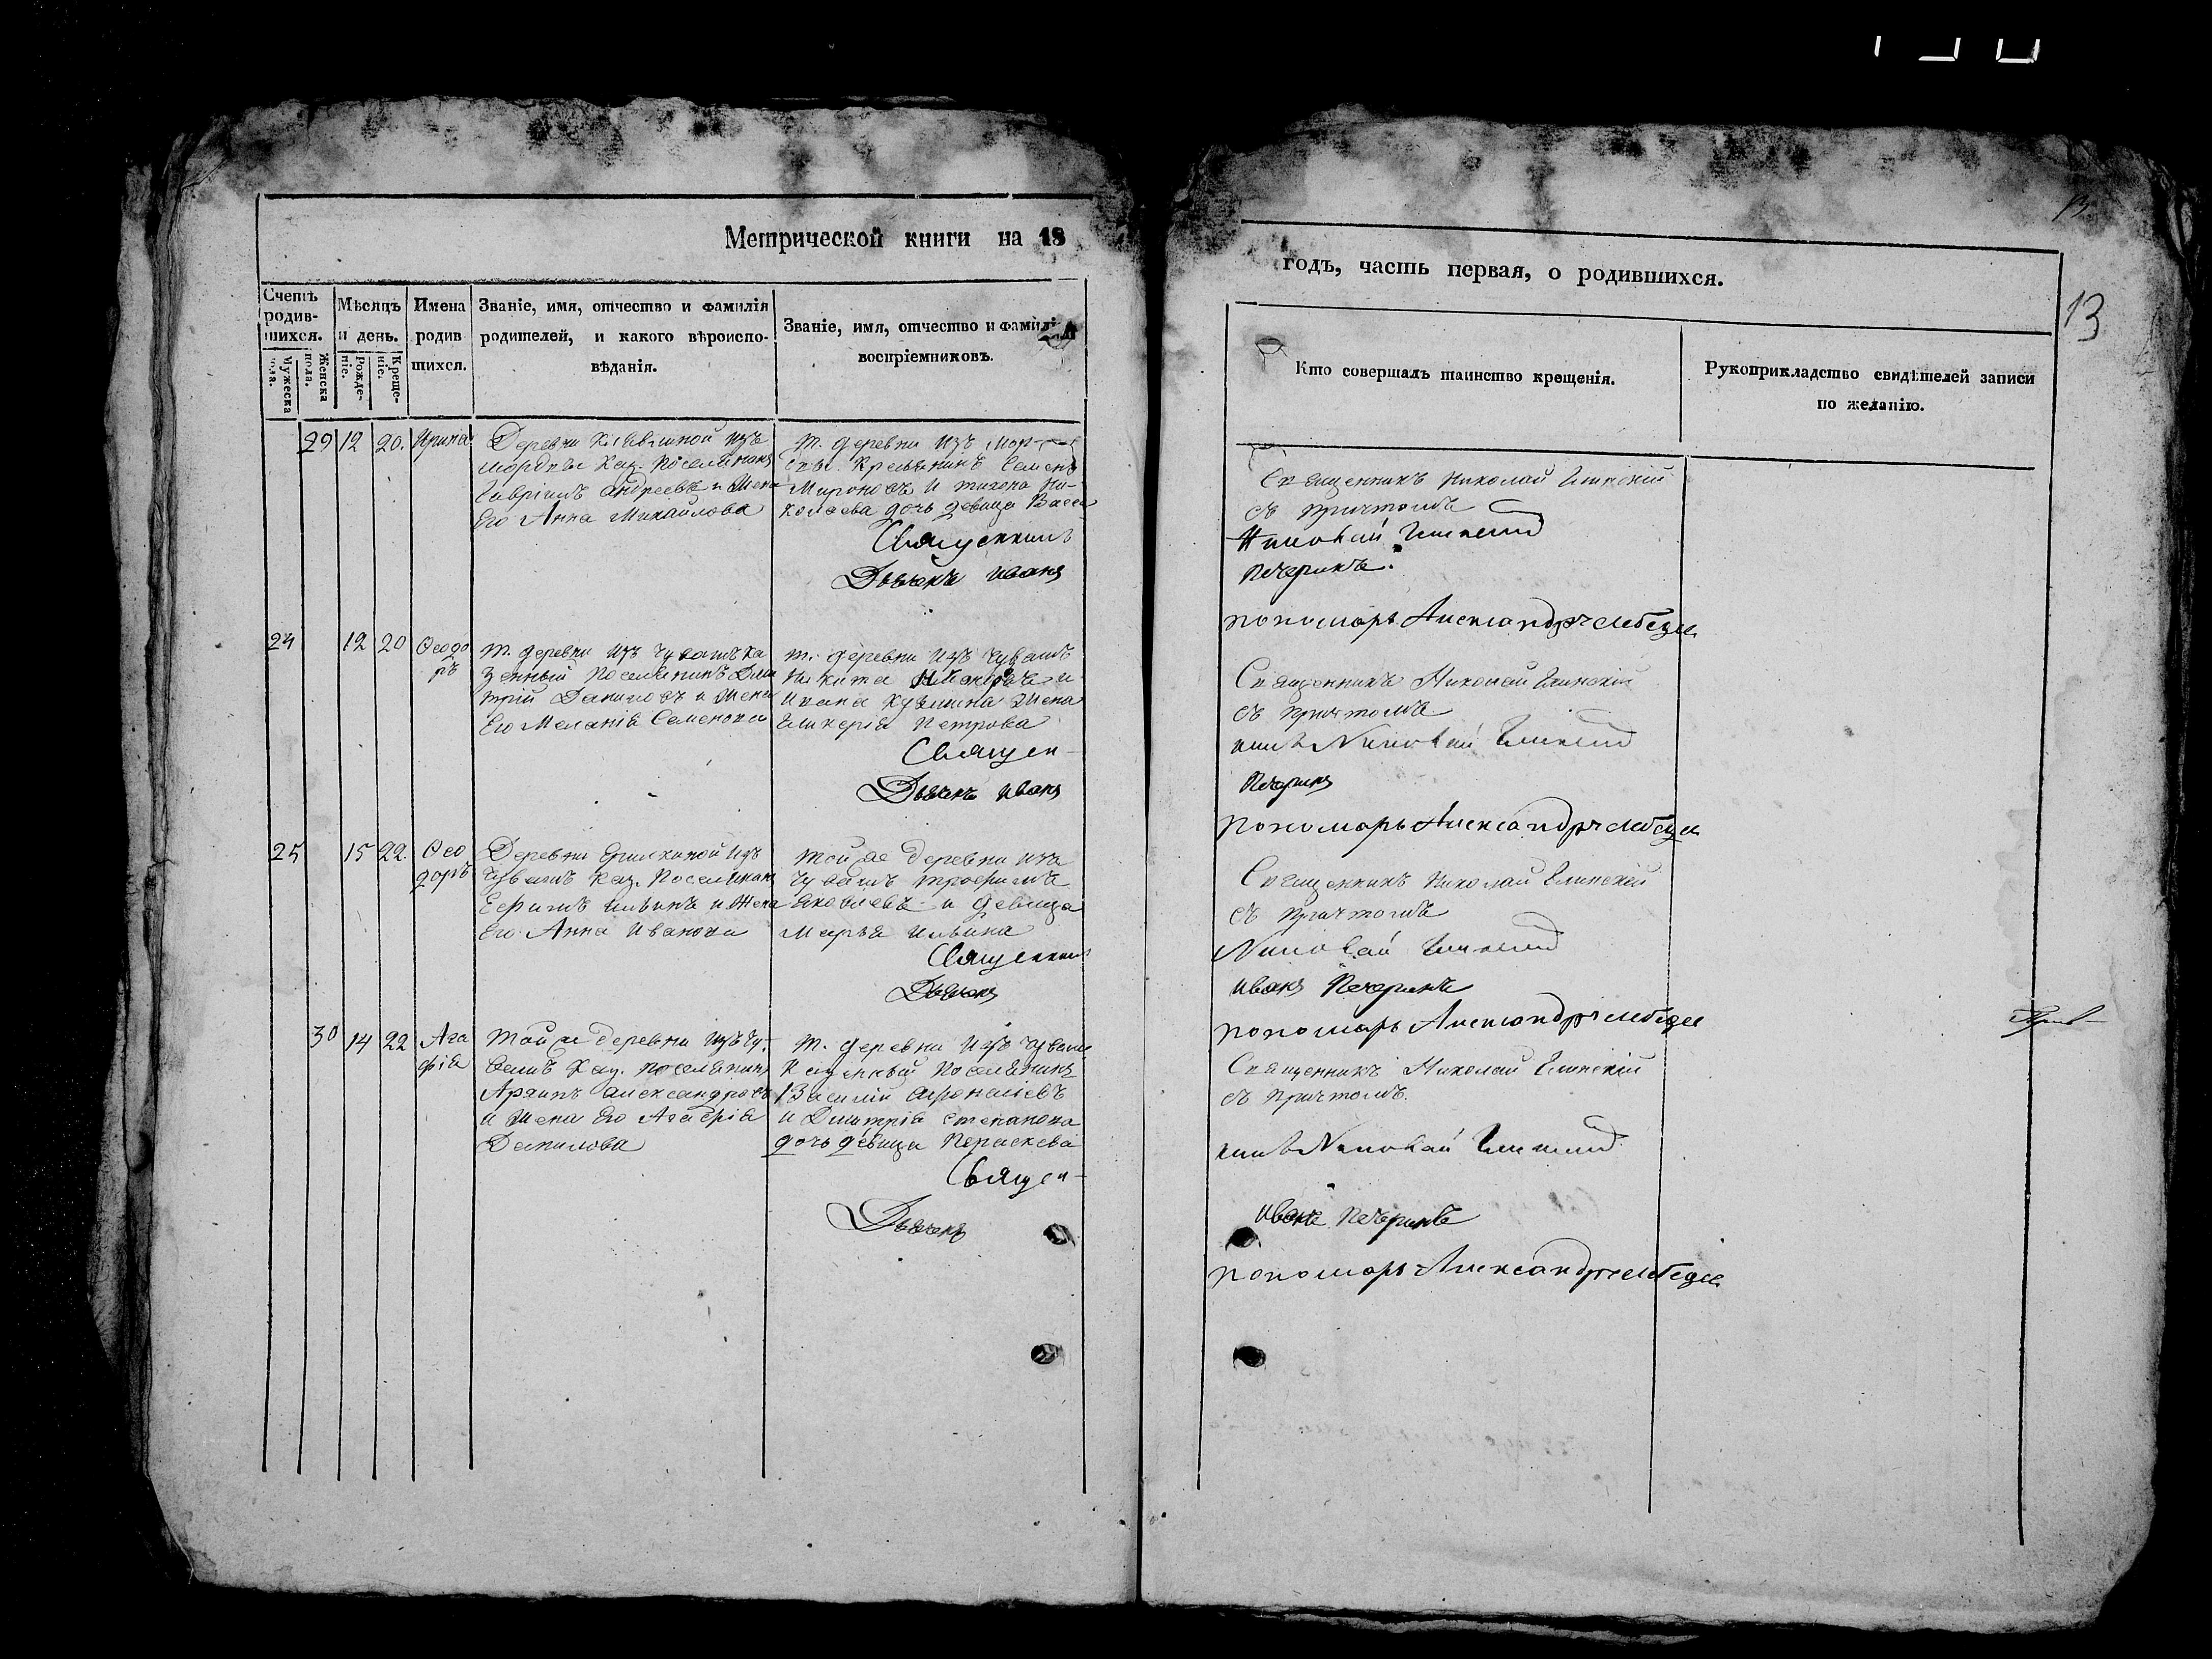 13
Метрической книги на 18
годъ, часть первая, о родившихся.
13
Счетъ родившихся.
Мужеска пола.
Женска пола.
Мѣсяцъ и день.
Рожденіе.
Крещеніе.
Имена родившихся.
Званіе, имя, отчество и фамилія
родителей, и какого вѣроиспо-
вѣданія.
Званіе, имя, отчество и фамилія
воспріемниковъ.
Кто совершалъ таинство крещенія.
Рукоприкладство свидѣтелей записи
по желанію.
29 12 20. Ирина
Деревни изъ
мордвы Каз. Поселянинъ
Гавріилъ Андреевъ и жена
Его Анна Михайлова
т. деревни изъ Морд-
Крестьянинъ Семенъ
Мироновъ и Ни-
колаева дочь девица Васса
Священникъ
Дьячекъ Иванъ
Священникъ Николай Глинскій
съ причтомъ
Николай Глинскій
Печеринъ.
пономарь Александръ Лебедев
24 12 20 Ѳеодо
ръ
т. деревни изъ чувашъ ка
зенный поселянинъ Дми
трій Даниловъ и жена
Его Меланія Семенова
т. деревни изъ чувашъ
Никита и
Ивана Кузмина жена
Гликерія Петрова
Священ-
Дьячекъ Иванъ
Священникъ Николай Глинскій
съ причтомъ
никъ Николай Глинскій
Печеринъ
пономарь Александръ Лебедев
25 15 22. Ѳео
доръ
Деревни Ерилкиной изъ
чувашъ Каз. Поселянинъ
Ефимъ Ильинъ и жена
Его Анна Иванова
той же деревни изъ
чувашъ Трофимъ
Яковлевъ и девица
Марья Ильина
Священникъ
Дьячекъ
Священникъ Николай Глинскій
съ причтомъ
Николай Глинскій
Иванъ Печеринъ
пономарь Александръ Лебедев
30 14 22 Ага
фія
Той же деревни изъ чу-
вашъ Каз. поселянинъ
Архипъ Александровъ
и жена Его Агафія
Данилова
т. деревни изъ чуваш
Казенный поселянинъ
Василій Афонасіевъ
и Дмитрія Степанова
дочь девица Параскева
Священ-
Дьячекъ
Священникъ Николай Глинскій
съ причтомъ.
никъ Николай Глинскій
Иванъ Печеринъ
пономарь Александръ Лебедев